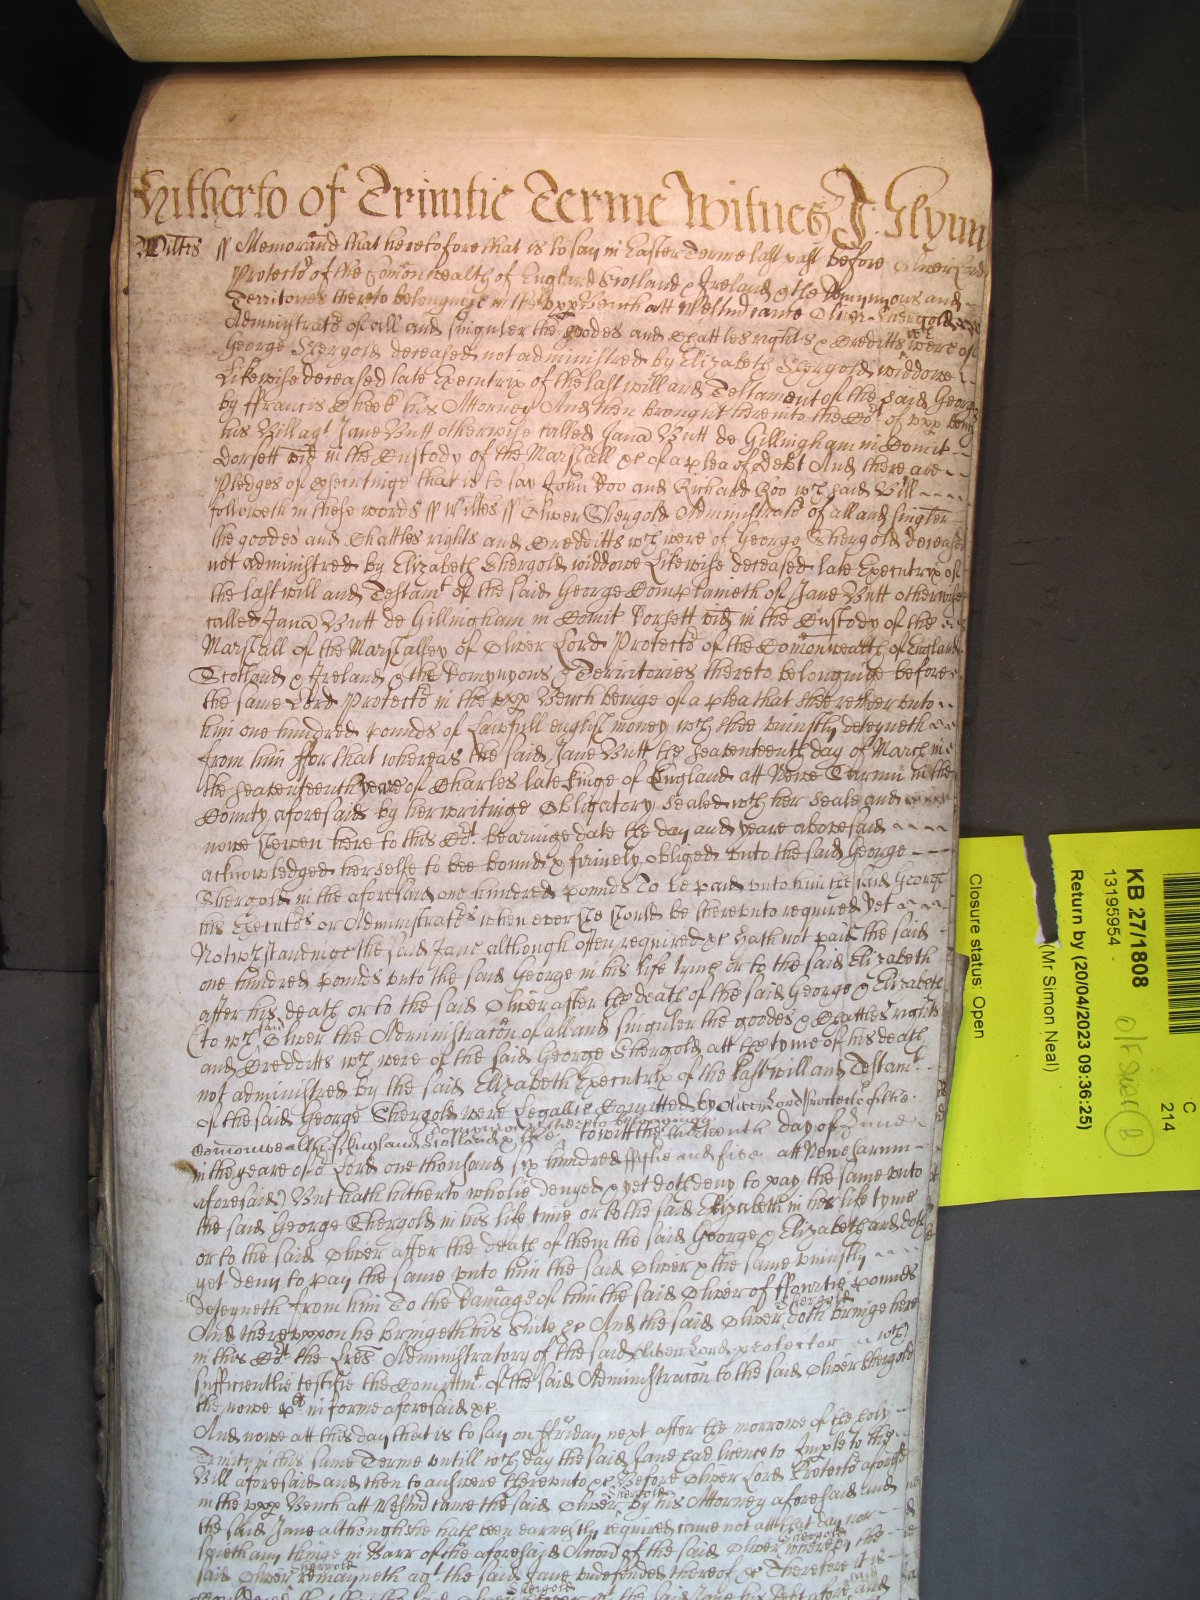 Hitherto of Trinitie Terme Witnes J: Glynn
Wiltes ss Memorand that heretofore that is to say in Easter Terme last past before Oliver Lord
Protecto'r of the Comonwealth of England Scotland & Ireland & the Domynyons and
Territories thereto belonginge in the upp Bench att Westm'r came Oliver Shergold
Administrato'r of all and singuler the goodes and Chattles rights & Creditts w'ch were of
George Shergold deceased not administred by Elizabeth Shergold widdowe
Likewise deceased late Executrix of the last will and Testament of the said George
by ffrancis Cheek his Attorney And then brought here into the Co'rt of upp Bench
his Bill ag't Jane Butt otherwise called Jana Butt de Gillingham in Comit
Dorsett vid in the Custody of the Marshall &c of a plea of Debt And there are
Pledges of Prosecutinge that is to say John Doo and Richard Roo w'ch said Bill
followeth in these words ss Wiltes ss Oliver Shergold Administrato'r of all and singler
the goodes and Chattles rights and Credditts w'ch were of George Shergold deceased
not administred by Elizabeth Shergold widdowe Likewise deceased late Executrix of
the last will and Testam't of the said George Complaineth of Jane Butt otherwise
called Jana Butt de Gillingham in Comit Dorsett vid in the Custody of the
Marshall of the Marshalsey of Oliver Lord Protecto'r of the Comonwealth of England
Scotland & Ireland & the Domynyons & Territories thereto belonginge before
the same Lord Protecto'r in the upp Bench beinge of a plea that shee render unto
him one hundred pounds of Lawfull english money w'ch shee uniustly deteyneth
from him ffor that whereas the said Jane Butt the seaventeenth day of March in
the seaventeenth yeere of Charles late Kinge of England att Newe Sarum in the
County aforesaid by her writinge Obligatory sealed w'th her seale and
nowe shewen here to this Co'rt bearinge date the day and yeare abovesaid
acknowledged herselfe to bee bound & firmely obliged unto the said George
Shergold in the aforesaid one hundred pounds To be paid unto him the said George
his Executo'rs or Administrato'rs when ever she should be thereunto required Yet
Notw'thstandinge the said Jane although often required &c hath not paid the said
one hundred pounds unto the said George in his life tyme or to the said Elizabeth
after his death or to the said Oliver after the death of the said George & Elizabeth
(to w'ch said Oliver the Administracon of all and singuler the goodes & Chattles rights
and Credditts w'ch were of the said George Shergold att the tyme of his death
not administred by the said Elizabeth Executrix of the last will and Testam't
of the said George Shergold were Legallie Comitted by Oliver Lord Protector of the
Comonwealth of England Scotland & Ire domynyons thereto belonginge to witt the thirteenth day of June
in the yeare of o'r Lord one thousand six hundred ffyftie and five att Newe Sarum
aforesaid) But hath hitherto wholie denyed & yet doth deny to pay the same unto
the said George Shergold in his life time or to the said Elizabeth in her life tyme
or to the said Oliver after the death of them the said George & Elizabeth and doth
yet deny to pay the same unto him the said Oliver & the same uniustly
deteyneth from him To the Damage of him the said Oliver of ffowrtie pounds
And thereuppon he bringeth his Suite &c And the said Oliver Shergold doth bringe here
in this Co'rt the Lres Administratory of the said Oliver Lord protector w'ch
sufficientlie testifie the Comittm't of the said Administracon to the said Oliver Shergold
the nowe pl't in forme aforesaid &c
And nowe att this day that is to say on ffriday next after the morrowe of the holy
Trinity in this same Terme untill w'ch day the said Jane had licence to Imple to the
Bill aforesaid and then to answere thereunto &c Before Oliver Lord Protecto'r aforesd
in the upp Bench att Westm'r came the said Oliver Shergold by his Attorney aforesaid and
the said Jane although she hath been earnestly required came not att that day nor
saieth any thinge in Barr of the aforesaid Accon of the said Oliver Shergold whereby the
said Oliver Shergold remayneth ag't the said Jane undefended thereof &c Therefore it is
Closure status: Open
(Mr Simon Neal)
Return by (20/04/2023 09:36:25)
13195954
KB 27/1808
C
214